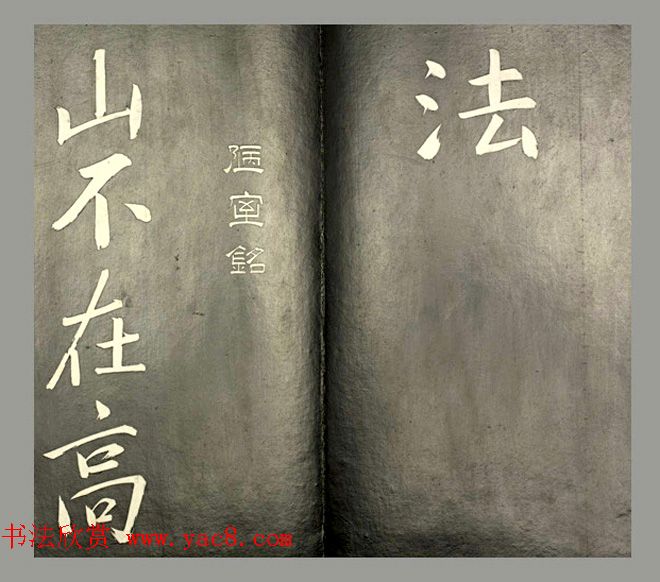 法
陋室銘
山不在高
书法欣赏 www.yac8.com